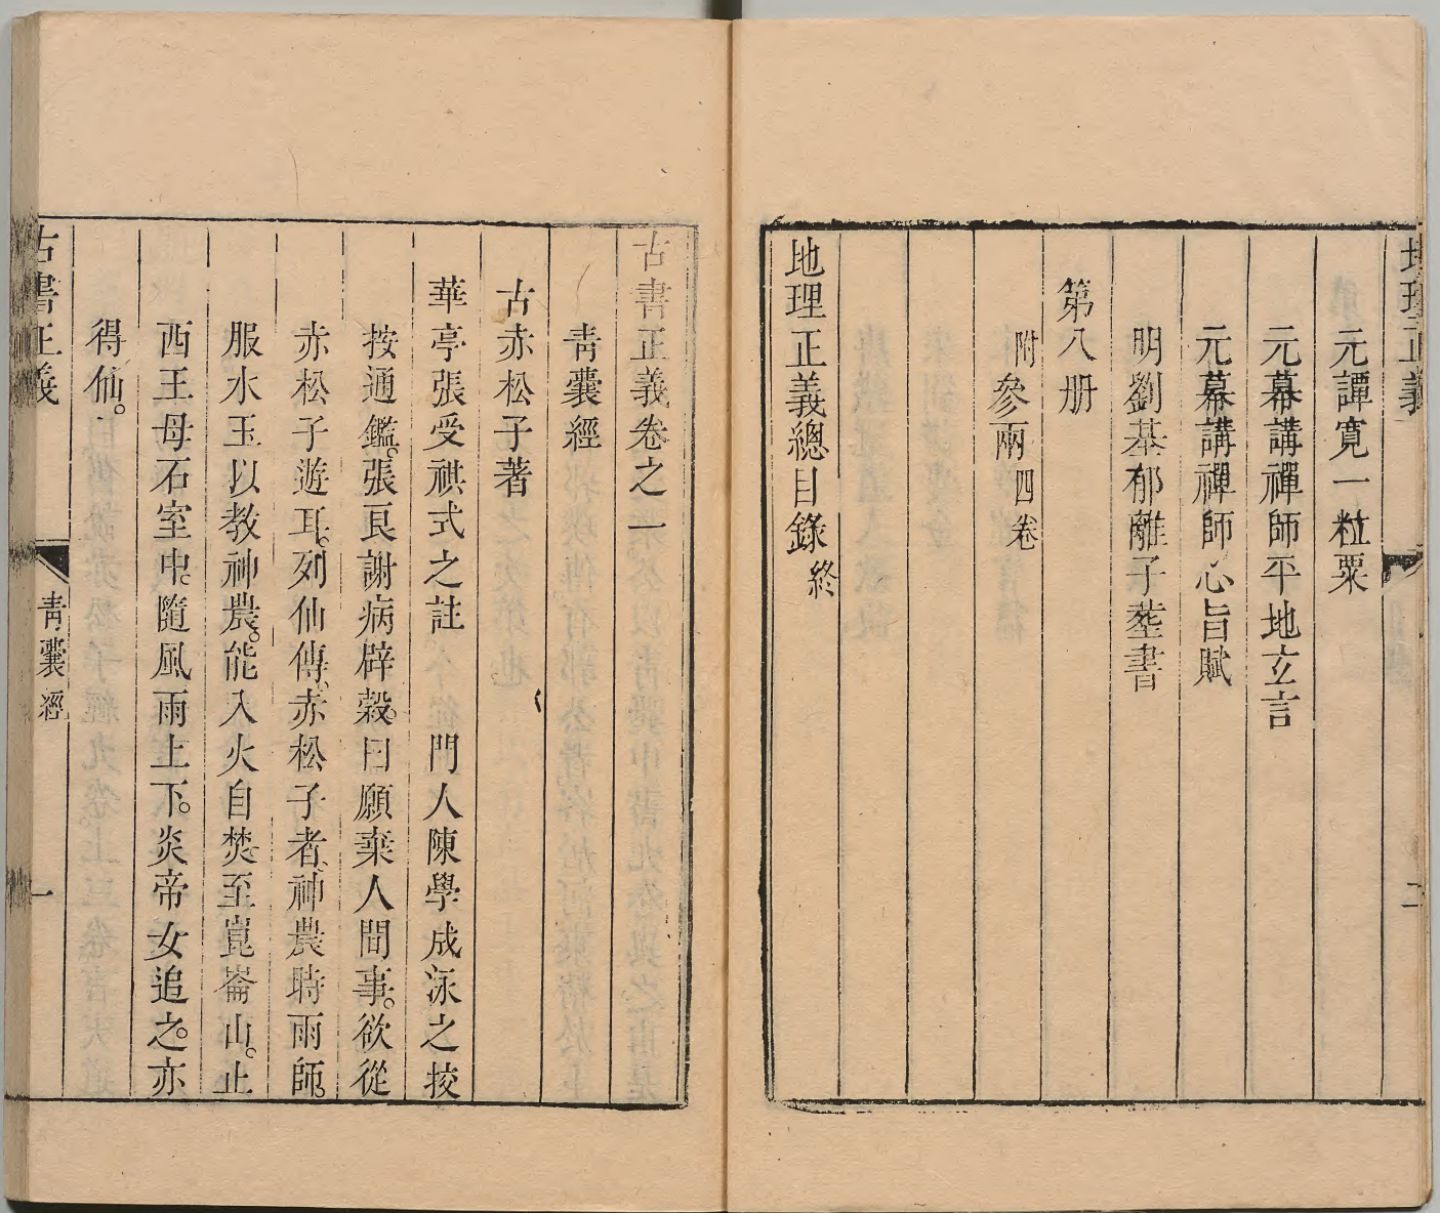 地理正義
二
元譚寬一粒粟
元幕講禪師平地玄言
元幕講禪師心旨賦
明劉基郁離子塟書
第八册
附參兩四卷
地理正義總目錄終
古書正義卷之一
青囊經
古赤松子著
華亭張受祺式之註 門人陳學成泳之挍
按通鑑。張良謝病辟穀。曰願棄人間事。欲從
赤松子遊耳。列仙傳。赤松子者。神農時雨師。
服水玉以教神農。能入火自焚。至崑崙山。止
西王母石室中。隨風雨上下。炎帝女追之。亦
得仙。
古書正義 青囊經 一